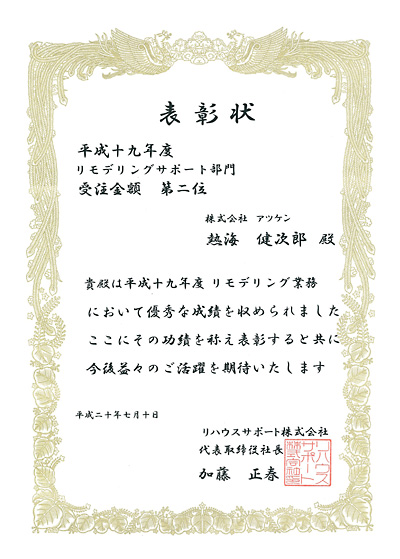 表彰状
平成十九年度
リモデリングサポート部門
受注金額　第二位
株式会社　アツケン
熱海　健次郎　殿
貴殿は平成十九年度 リモデリング業務
において優秀な成績を収められました
ここにその功績を称え表彰すると共に
今後益々のご活躍を期待いたします
平成二十年七月十日
リハウスサポート株式会社
代表取締役社長
加藤　正春
リハウス
サポート
株式会社